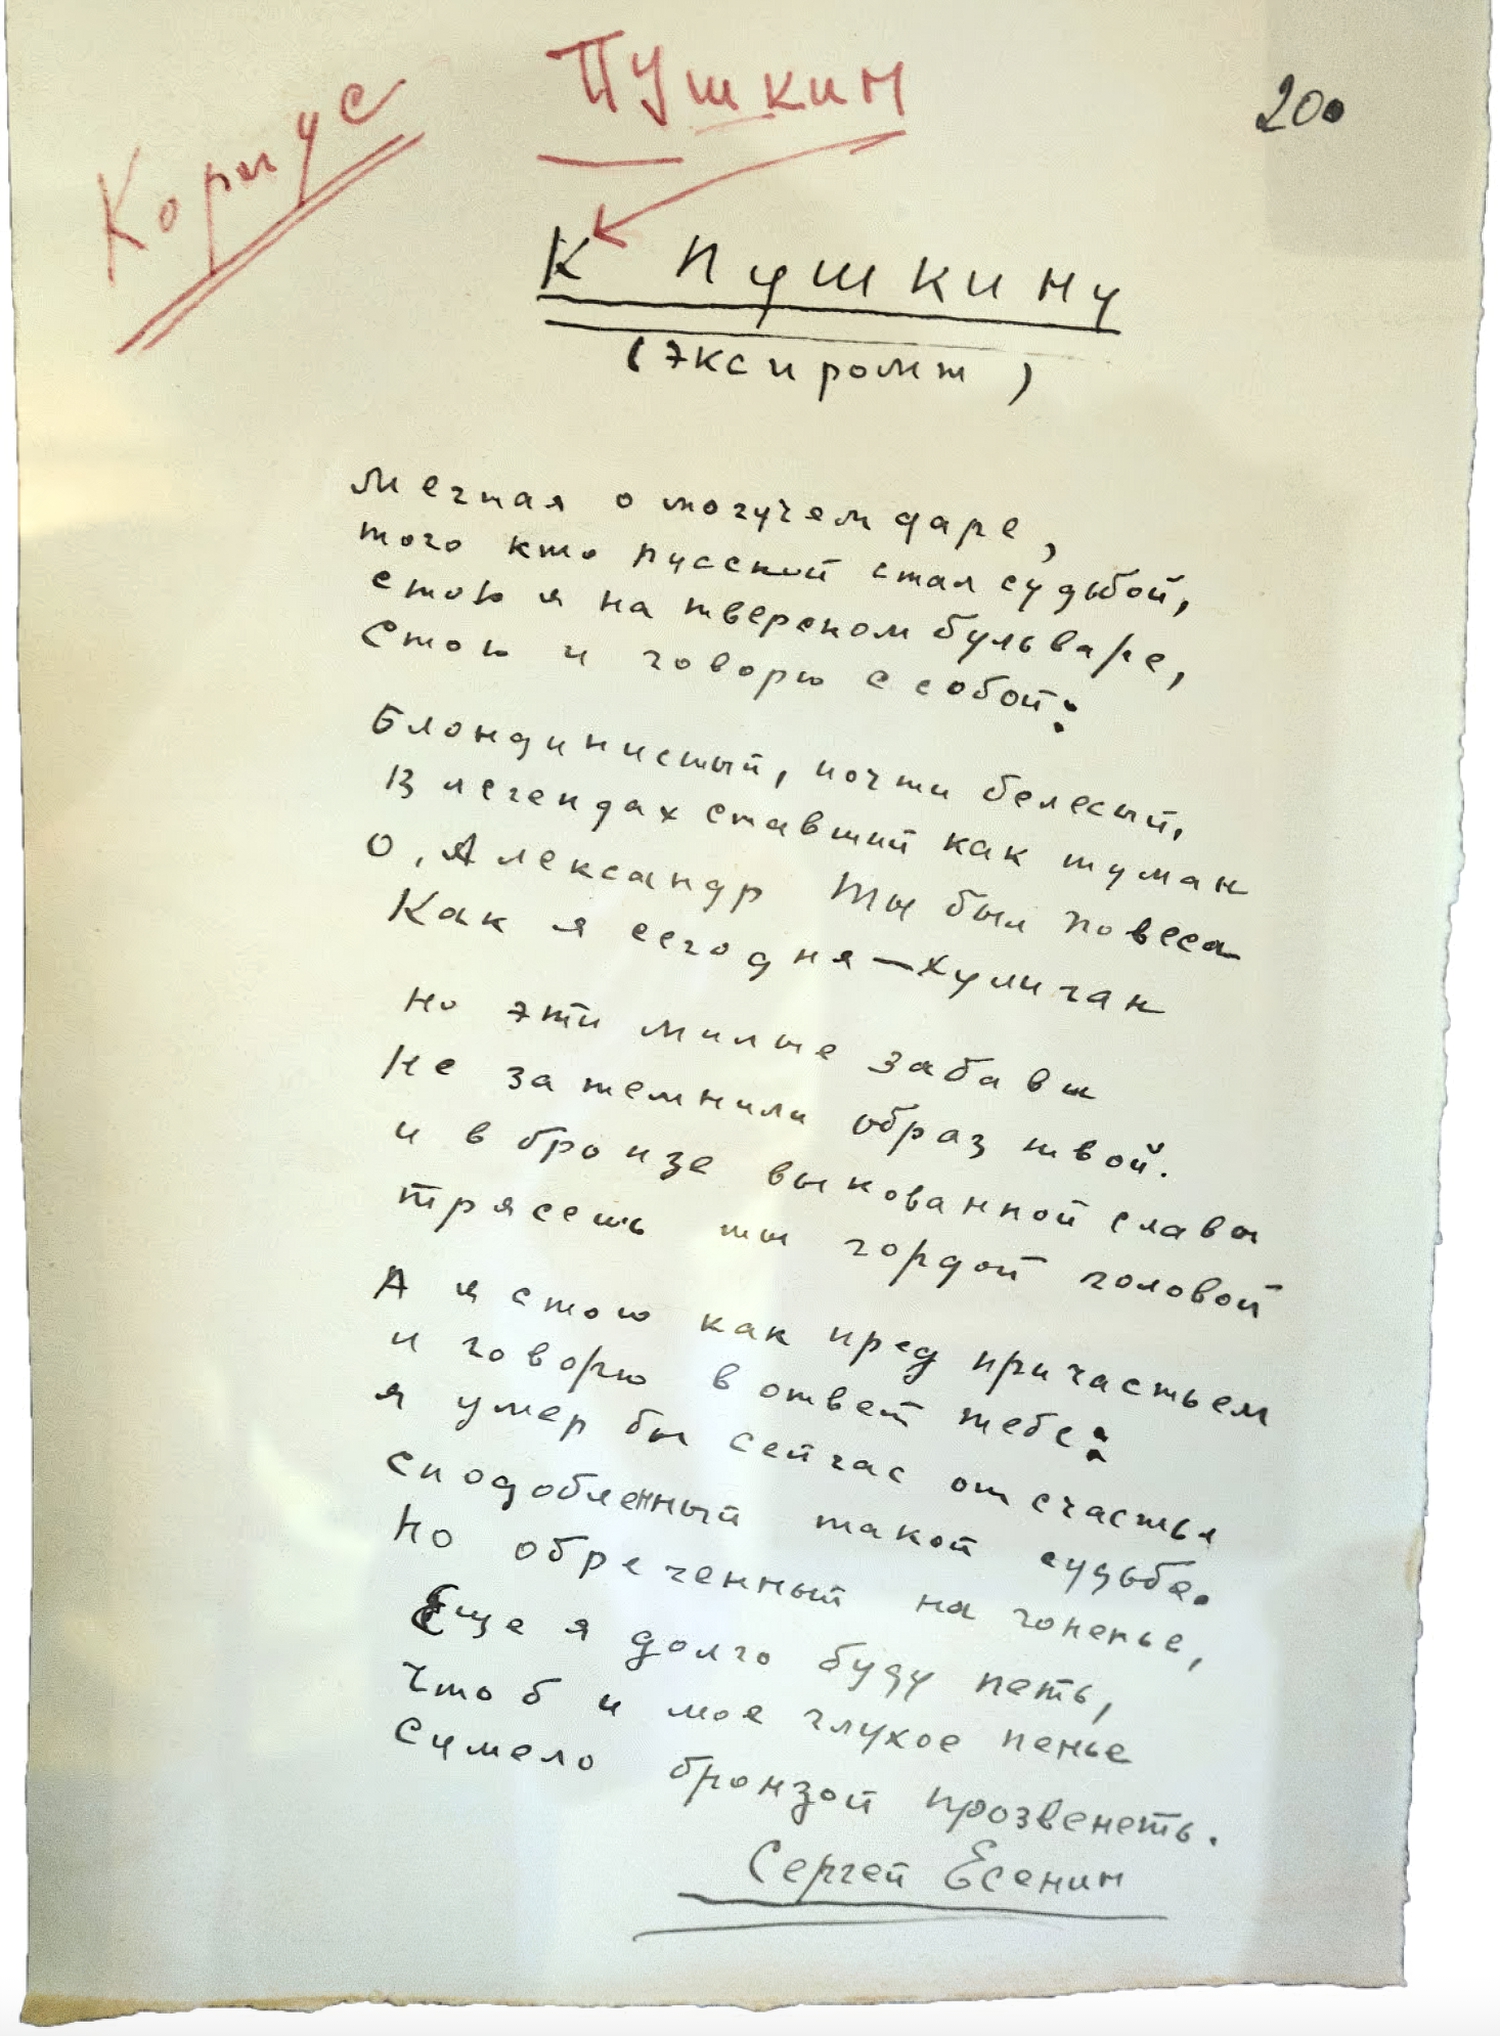 Корпус
Пушкин
200
К Пушкину
(Экспромт)
Мечтая о могучем даре,
того кто русской стал судьбой,
стою я на тверском бульваре,
Стою и говорю с собой:
Блондинистый, почти белесый,
В легендах ставший как туман
О, Александр Ты был повеса
Как я сегодня—хулиган
Но эти милые забавы
Не затемнили образ твой.
и в бронзе выкованной славы
трясешь ты гордой головой
А я стою как пред причастьем
и говорю в ответ тебе:
я умер бы сейчас от счастья
сподобленный такой судьбе.
Но обреченный на гоненье,
Еще я долго буду петь,
Чтоб и мое глухое пенье
Сумело бронзой прозвенеть.
Сергей Есенин